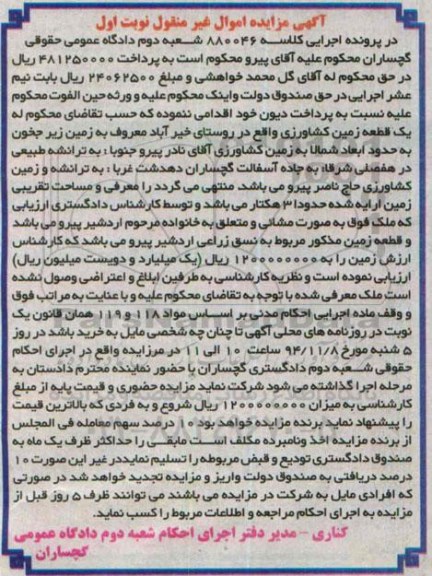 آگهی مزایده اموال غیر منقول نوبت اول
در پرونده اجرایی کلاسه ۸۸۰۰۴۶ شعبه دوم دادگاه عمومی حقوقی
گچساران محکوم علیه آقای پیرو محکوم است به پرداخت ۴۸۱۲۵۰۰۰۰ ریال
در حق محکوم له آقای گل محمد خواهشی و مبلغ ۲۴۰۶۲۵۰۰ ریال بابت نیم
عشر اجرایی در حق صندوق دولت واینک محکوم علیه و ورثه حین الفوت محکوم
علیه نسبت به پرداخت دیون خود اقدامی ننموده که حسب تقاضای محکوم له
یک قطعه زمین کشاورزی واقع در روستای خیر آباد معروف به زمین زیر جخون
به حدود ابعاد شمالا به زمین کشاورزی آقای نادر پیرو جنوبا : به ترانشه طبیعی
در هفصلی شرقا: به جاده آسفالت گچساران دهدشت غربا : به ترانشه و زمین
کشاورزی حاج ناصر پیرو می باشد، منتهی می گردد را معرفی و مساحت تقریبی
زمین ارایه شده حدودا ۳ هکتار می باشد و توسط کارشناس دادگستری ارزیابی
که ملک فوق به صورت مشائی و متعلق به خانواده مرحوم اردشیر پیرو می باشد
و قطعه زمین مذکور مربوط به نسق زراعی اردشیر پیرو می باشد که کارشناس
ارزش زمین را به ۱۲۰۰۰۰۰۰۰۰ ریال (یک میلیارد و دویست میلیون ریال)
ارزیابی نموده است و نظریه کارشناسی به طرفین ابلاغ و اعتراضی وصول نشده
است ملک معرفی شده با توجه به تقاضای محکوم علیه و با عنایت به مراتب فوق
و وقف ماده اجرایی احکام مدنی بر اساس مواد ۱۱۸ و ۱۱۹ همان قانون یک
نوبت در روزنامه های محلی آگهی تا چنان چه شخصی مایل به خرید باشد در روز
۵ شنبه مورخ ۹۴/۱۱/۸ ساعت ۱۰ الی ۱۱ در مرزایده واقع در اجرای احکام
حقوقی شعبه دوم دادگستری گچساران با حضور نماینده محترم دادستان به
مرحله اجرا گذاشته می شود شرکت نماید مزایده حضوری و قیمت پایه از مبلغ
کارشناسی به میزان ۱۲۰۰۰۰۰۰۰۰ ریال شروع و به فردی که بالاترین قیمت
را پیشنهاد نماید برنده مزایده خواهد بود ۱۰ درصد سهم معامله فی المجلس
از برنده مزایده اخذ ونامبرده مکلف است مابقی را حداکثر ظرف یک ماه به
صندوق دادگستری تودیع و قبض مربوطه را تسلیم نمایددر غیر این صورت ۱۰
درصد دریافتی به صندوق دولت واریز و مزایده تجدید خواهد شد در صورتی
که افرادی مایل به شرکت در مزایده می باشند می توانند ظرف ۵ روز قبل از
مزایده به اجرای احکام مراجعه و اطلاعات مربوط را کسب نماید.
کناری - مدیر دفتر اجرای احکام شعبه دوم دادگاه عمومی
گچساران